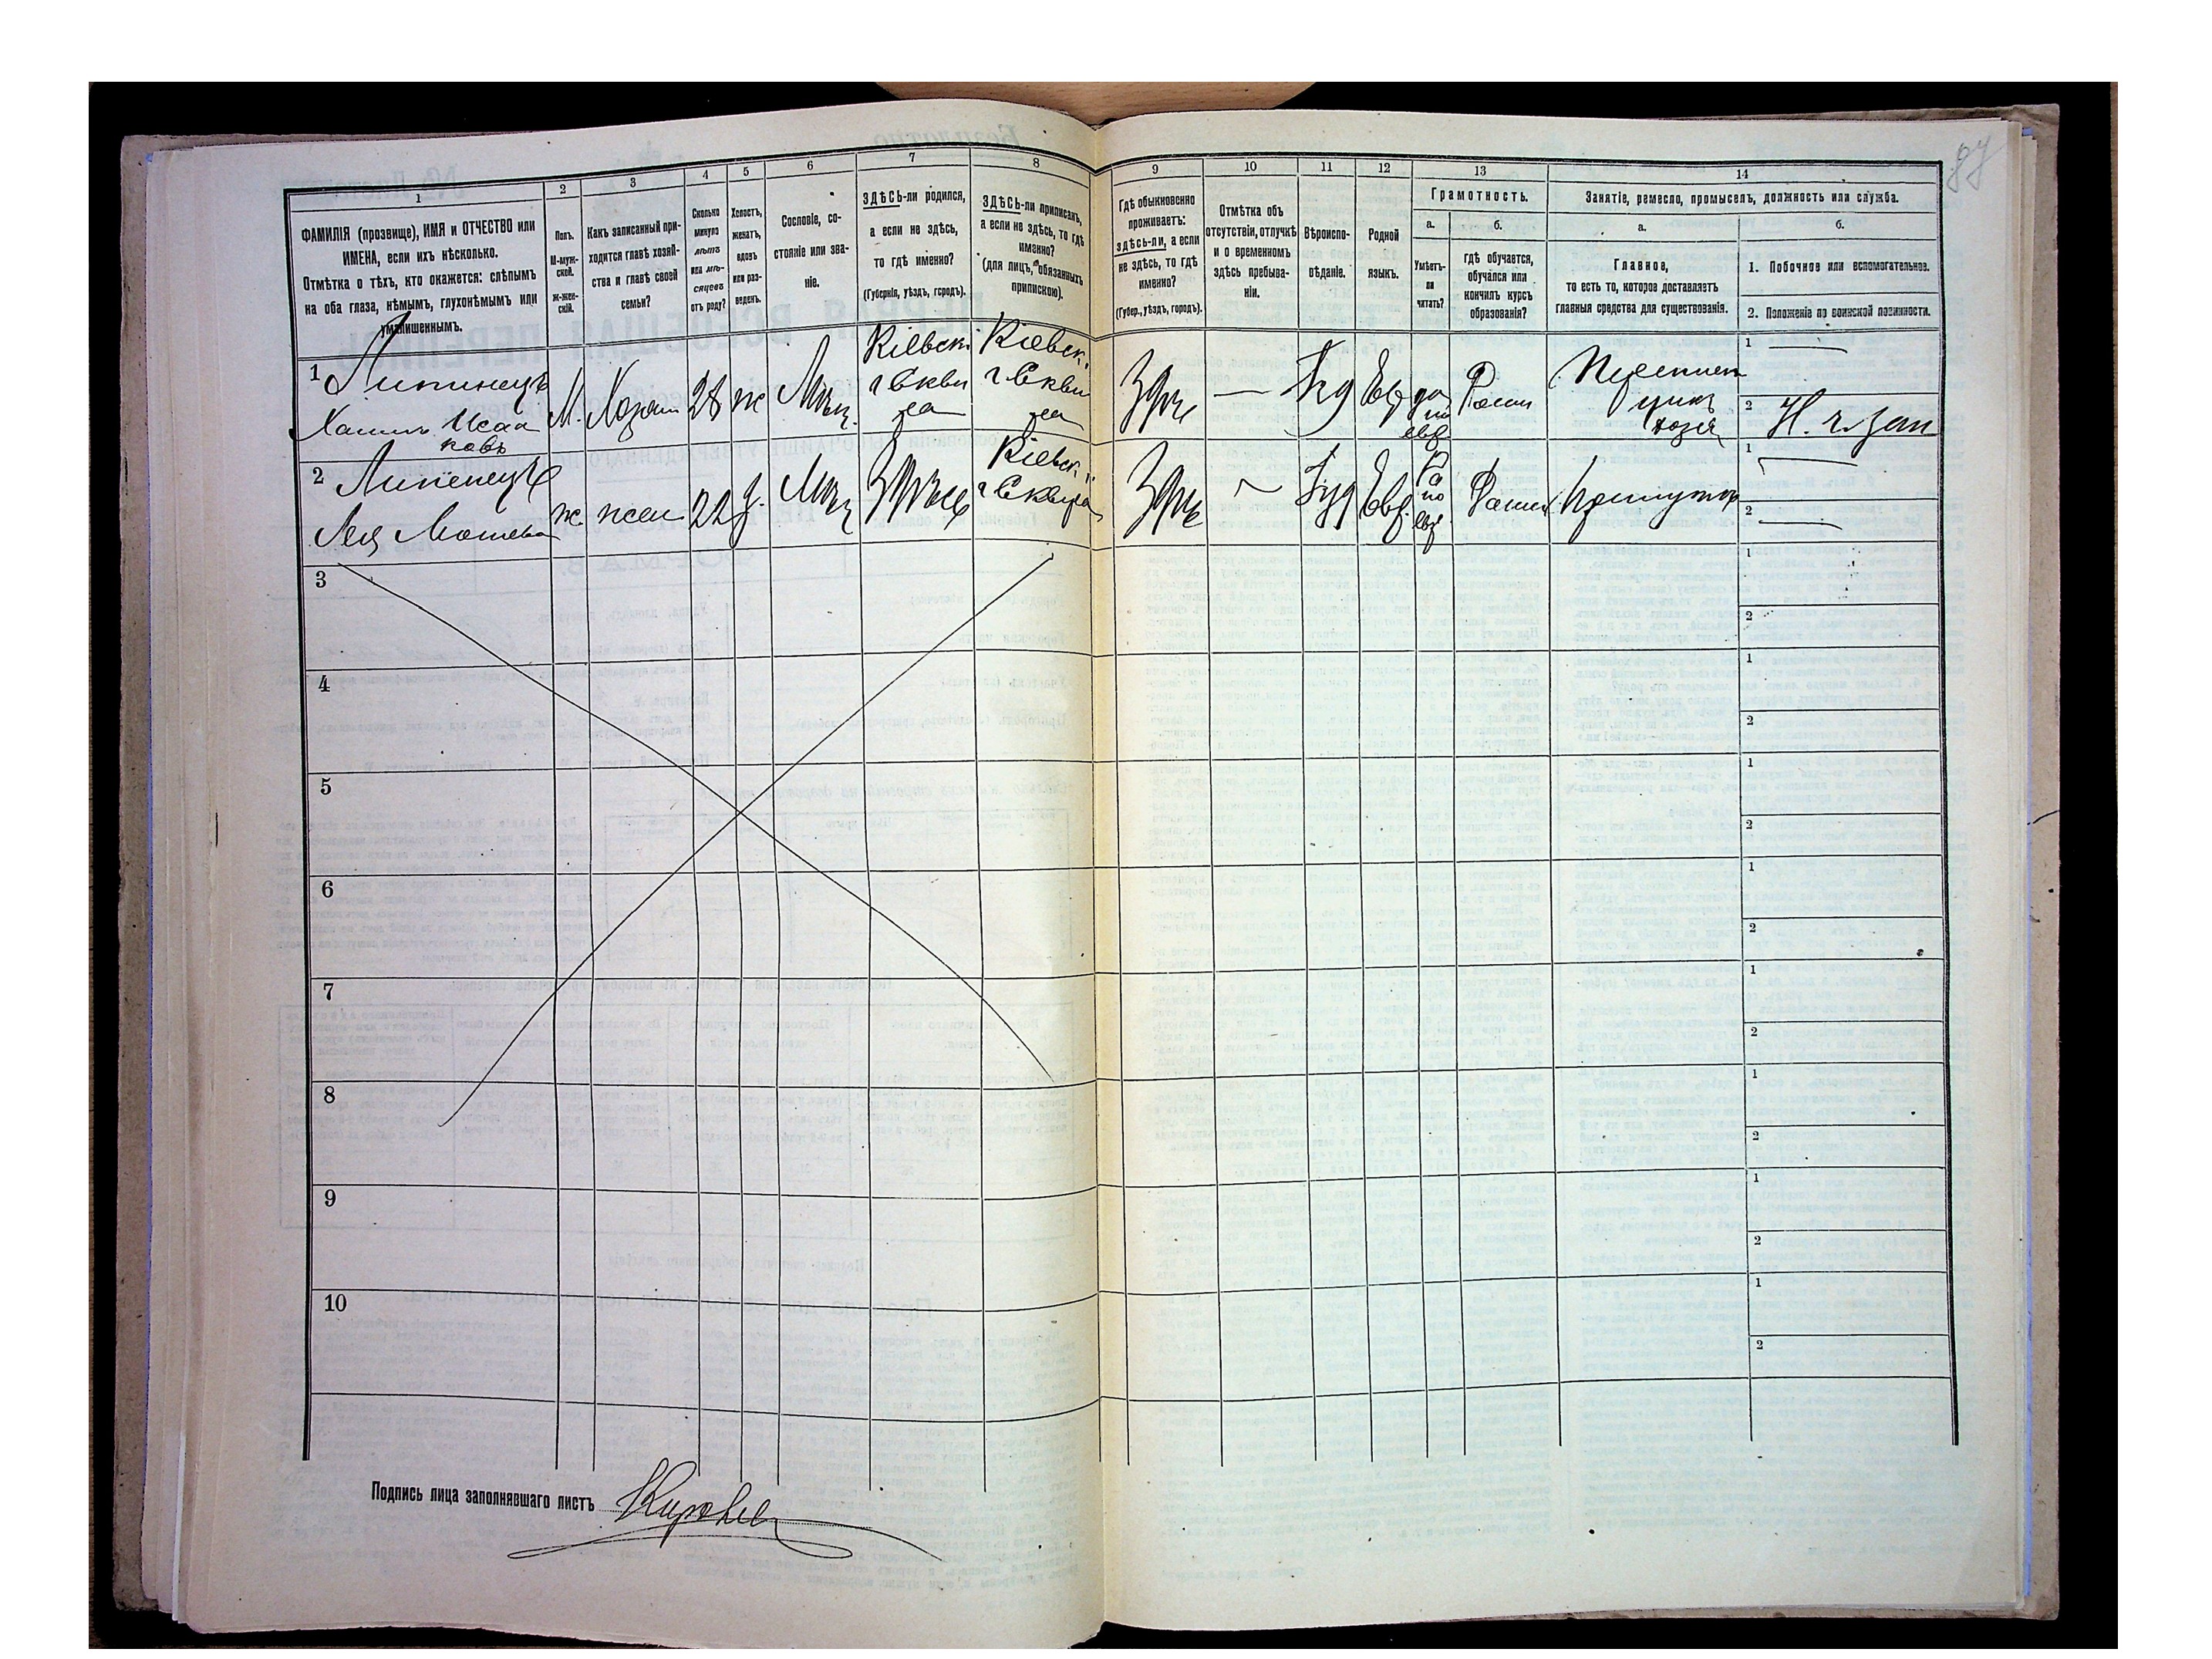 1
2
3
4
5
6
7
8
9
10
11
12
13
14
ФАМИЛІЯ (прозвище), ИМЯ и ОТЧЕСТВО или
ИМЕНА, если ихъ нѣсколько.
Отмѣтка о тѣхъ, кто окажется: слѣпымъ
на оба глаза, нѣмымъ, глухонѣмымъ или
умалишеннымъ.
Полъ.
М-муж-
ской.
ж-жен-
скій.
Какъ записанный при-
ходится главѣ хозяй-
ства и главѣ своей
семьи?
Сколько
минуло
лѣтъ
или мѣ-
сяцевъ
отъ роду?
Холостъ,
женатъ,
вдовъ
или раз-
веденъ.
Сословіе, со-
стояніе или зва-
ніе.
ЗДѢСЬ-ли родился,
а если не здѣсь,
то гдѣ именно?
(Губернія, уѣздъ, городъ).
ЗДѢСЬ-ли приписанъ,
а если не здѣсь, то гдѣ
именно?
(для лицъ, обязанныхъ
припискою).
Гдѣ обыкновенно
проживаетъ:
здѣсь-ли, а если
не здѣсь, то гдѣ
именно?
(Губер., уѣздъ, городъ).
Отмѣтка объ
отсутствіи, отлучкѣ
и о временномъ
здѣсь пребыва-
ніи.
Вѣроиспо-
вѣданіе.
Родной
языкъ.
Грамотность.
а.
Умѣетъ-
ли
читать?
б.
гдѣ обучается,
обучался или
кончилъ курсъ
образованія?
Занятіе, ремесло, промыселъ, должность или служба.
а.
Главное,
то есть то, которое доставляетъ
главныя средства для существованія.
б.
1. Побочное или вспомогательное.
2. Положеніе по воинской повинности.
1 Липинецъ
Хаимъ Исаа
ковъ
М. Хозяин 28 ж Мѣщ.
Кіевск.
г Сквы
ра
Кіевск.
г Сквы
ра
Здѣс — Іуд Евр да
по
евр
хозя
1
2 Н. г. зап
2 Липенецъ
Лея Мошева
ж жен 22 З. Мѣщ Здѣсь
Кіевск.
г Сквира
Здѣс Іуд Евр. да
по
евр
1
2
3
1
2
4
1
2
5
1
2
6
1
2
7
1
2
8
1
2
9
1
2
10
1
2
Подпись лица заполнявшаго листъ